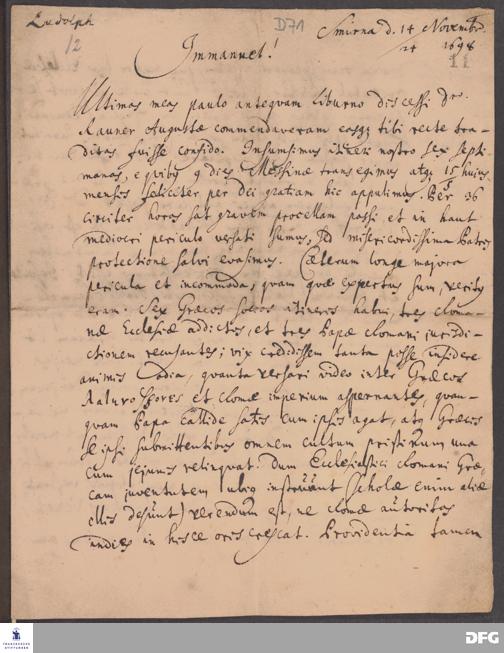 Ludolph
D71
Smirna d. 14/24 Novembr. 1698
12
11
Immanuel!
Ultimas meas paulo anteqvam Liburno discessi Dro.
Rauner Augustæ commendaveram easqz tibi recte tra-
ditas fuisse confido. Insumsimus itineri nostro sex septi-
manas, e qvibq 9 dies Messinæ transegimus atqz 15 hujus
mensis feliciter per Dei gratiam hic appulimus. Per 36
circiter horas sat gravem procellam passi et in haut
mediocri periculo versati sumus, sed misericordissima Patris
protectione salvi evasimus. Cæterum longe majora
pericula et incommoda, qvam qvæ expertus sum, veritq
eram. Sex Græcos socios itineris habui, tres Roma-
næ Ecclesiæ addictos, et tres Papæ Romani jurisdi-
ctionem recusantes; vix credidissem tanta posse insidere
animis odia, qvanta versari video inter Græcos
et Romæ imperium aspernantes, qvan-
qvam Papa callide satis cum ipsis agat, atqz Græcis
se ipsi submittentibus omnem cultum pristinum una
cum jejuniis relinqvat. Dum Ecclesiastici Romani Græ-
cam juventutem ubiqz instruunt (scholæ enim aliæ
illis desunt) verendum est, ne Romæ autoritas
indies in hisce oris crescat. Providentia tamen
FRANCKESCHE STIFTUNGEN
DFG